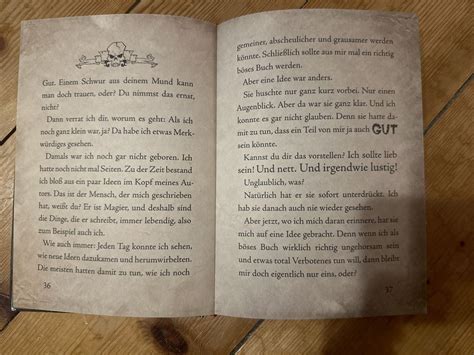 Gut. Einem Schwur aus deinem Mund kann
man doch trauen, oder? Du nimmst das ernst,
nicht?
Dann verrat ich dir, worum es geht: Als ich
noch ganz klein war, ja? Da habe ich etwas Merk-
würdiges gesehen.
Damals war ich noch gar nicht geboren. Ich
hatte noch nicht mal Seiten. Zu der Zeit bestand
ich bloß aus ein paar Ideen im Kopf meines Au-
tors. Das ist der Mensch, der mich geschrieben
hat, weißt du? Er ist Magier, und deshalb sind
die Dinge, die er schreibt, immer lebendig, also
zum Beispiel auch ich.
Wie auch immer: Jeden Tag konnte ich sehen,
wie neue Ideen dazukamen und herumwirbelten.
Die meisten hatten damit zu tun, wie ich noch
36
gemeiner, abscheulicher und grausamer werden
könnte. Schließlich sollte aus mir mal ein richtig
böses Buch werden.
Aber eine Idee war anders.
Sie huschte nur ganz kurz vorbei. Nur einen
Augenblick. Aber da war sie ganz klar. Und ich
konnte es gar nicht glauben. Denn sie hatte da-
mit zu tun, dass ein Teil von mir ja auch GUT
sein könnte.
Kannst du dir das vorstellen? Ich sollte lieb
sein! Und nett. Und irgendwie lustig!
Unglaublich, was?
Natürlich hat er sie sofort unterdrückt. Ich
hab sie danach auch nie wieder gesehen.
Aber jetzt, wo ich mich daran erinnere, hat sie
mich auf eine Idee gebracht. Denn wenn ich als
böses Buch wirklich richtig ungehorsam sein
und etwas total Verbotenes tun will, dann bleibt
mir doch eigentlich nur eins, oder?
37